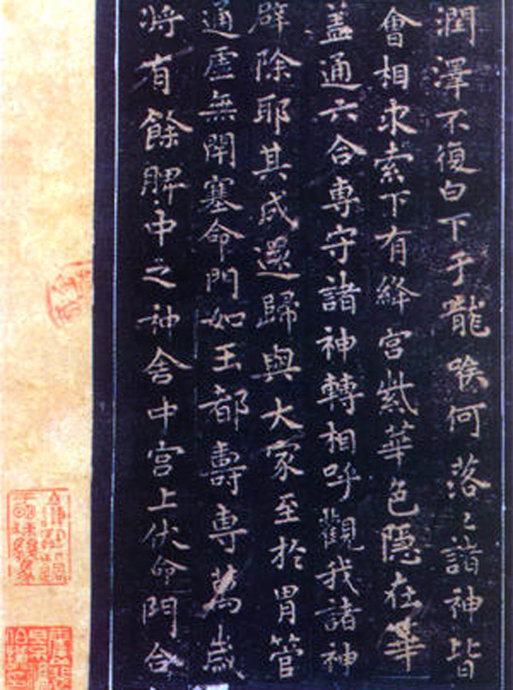 潤澤不復白下于嚨喉何落〻諸神皆
會相求索下有絳宮紫華色隱在華
盖通六合專守諸神轉相呼觀我諸神
辟除耶其成還歸與大家至於胃管
通虛無閉塞命門如玉都壽專萬歲
將有餘脾中之神舍中宮上伏命門合